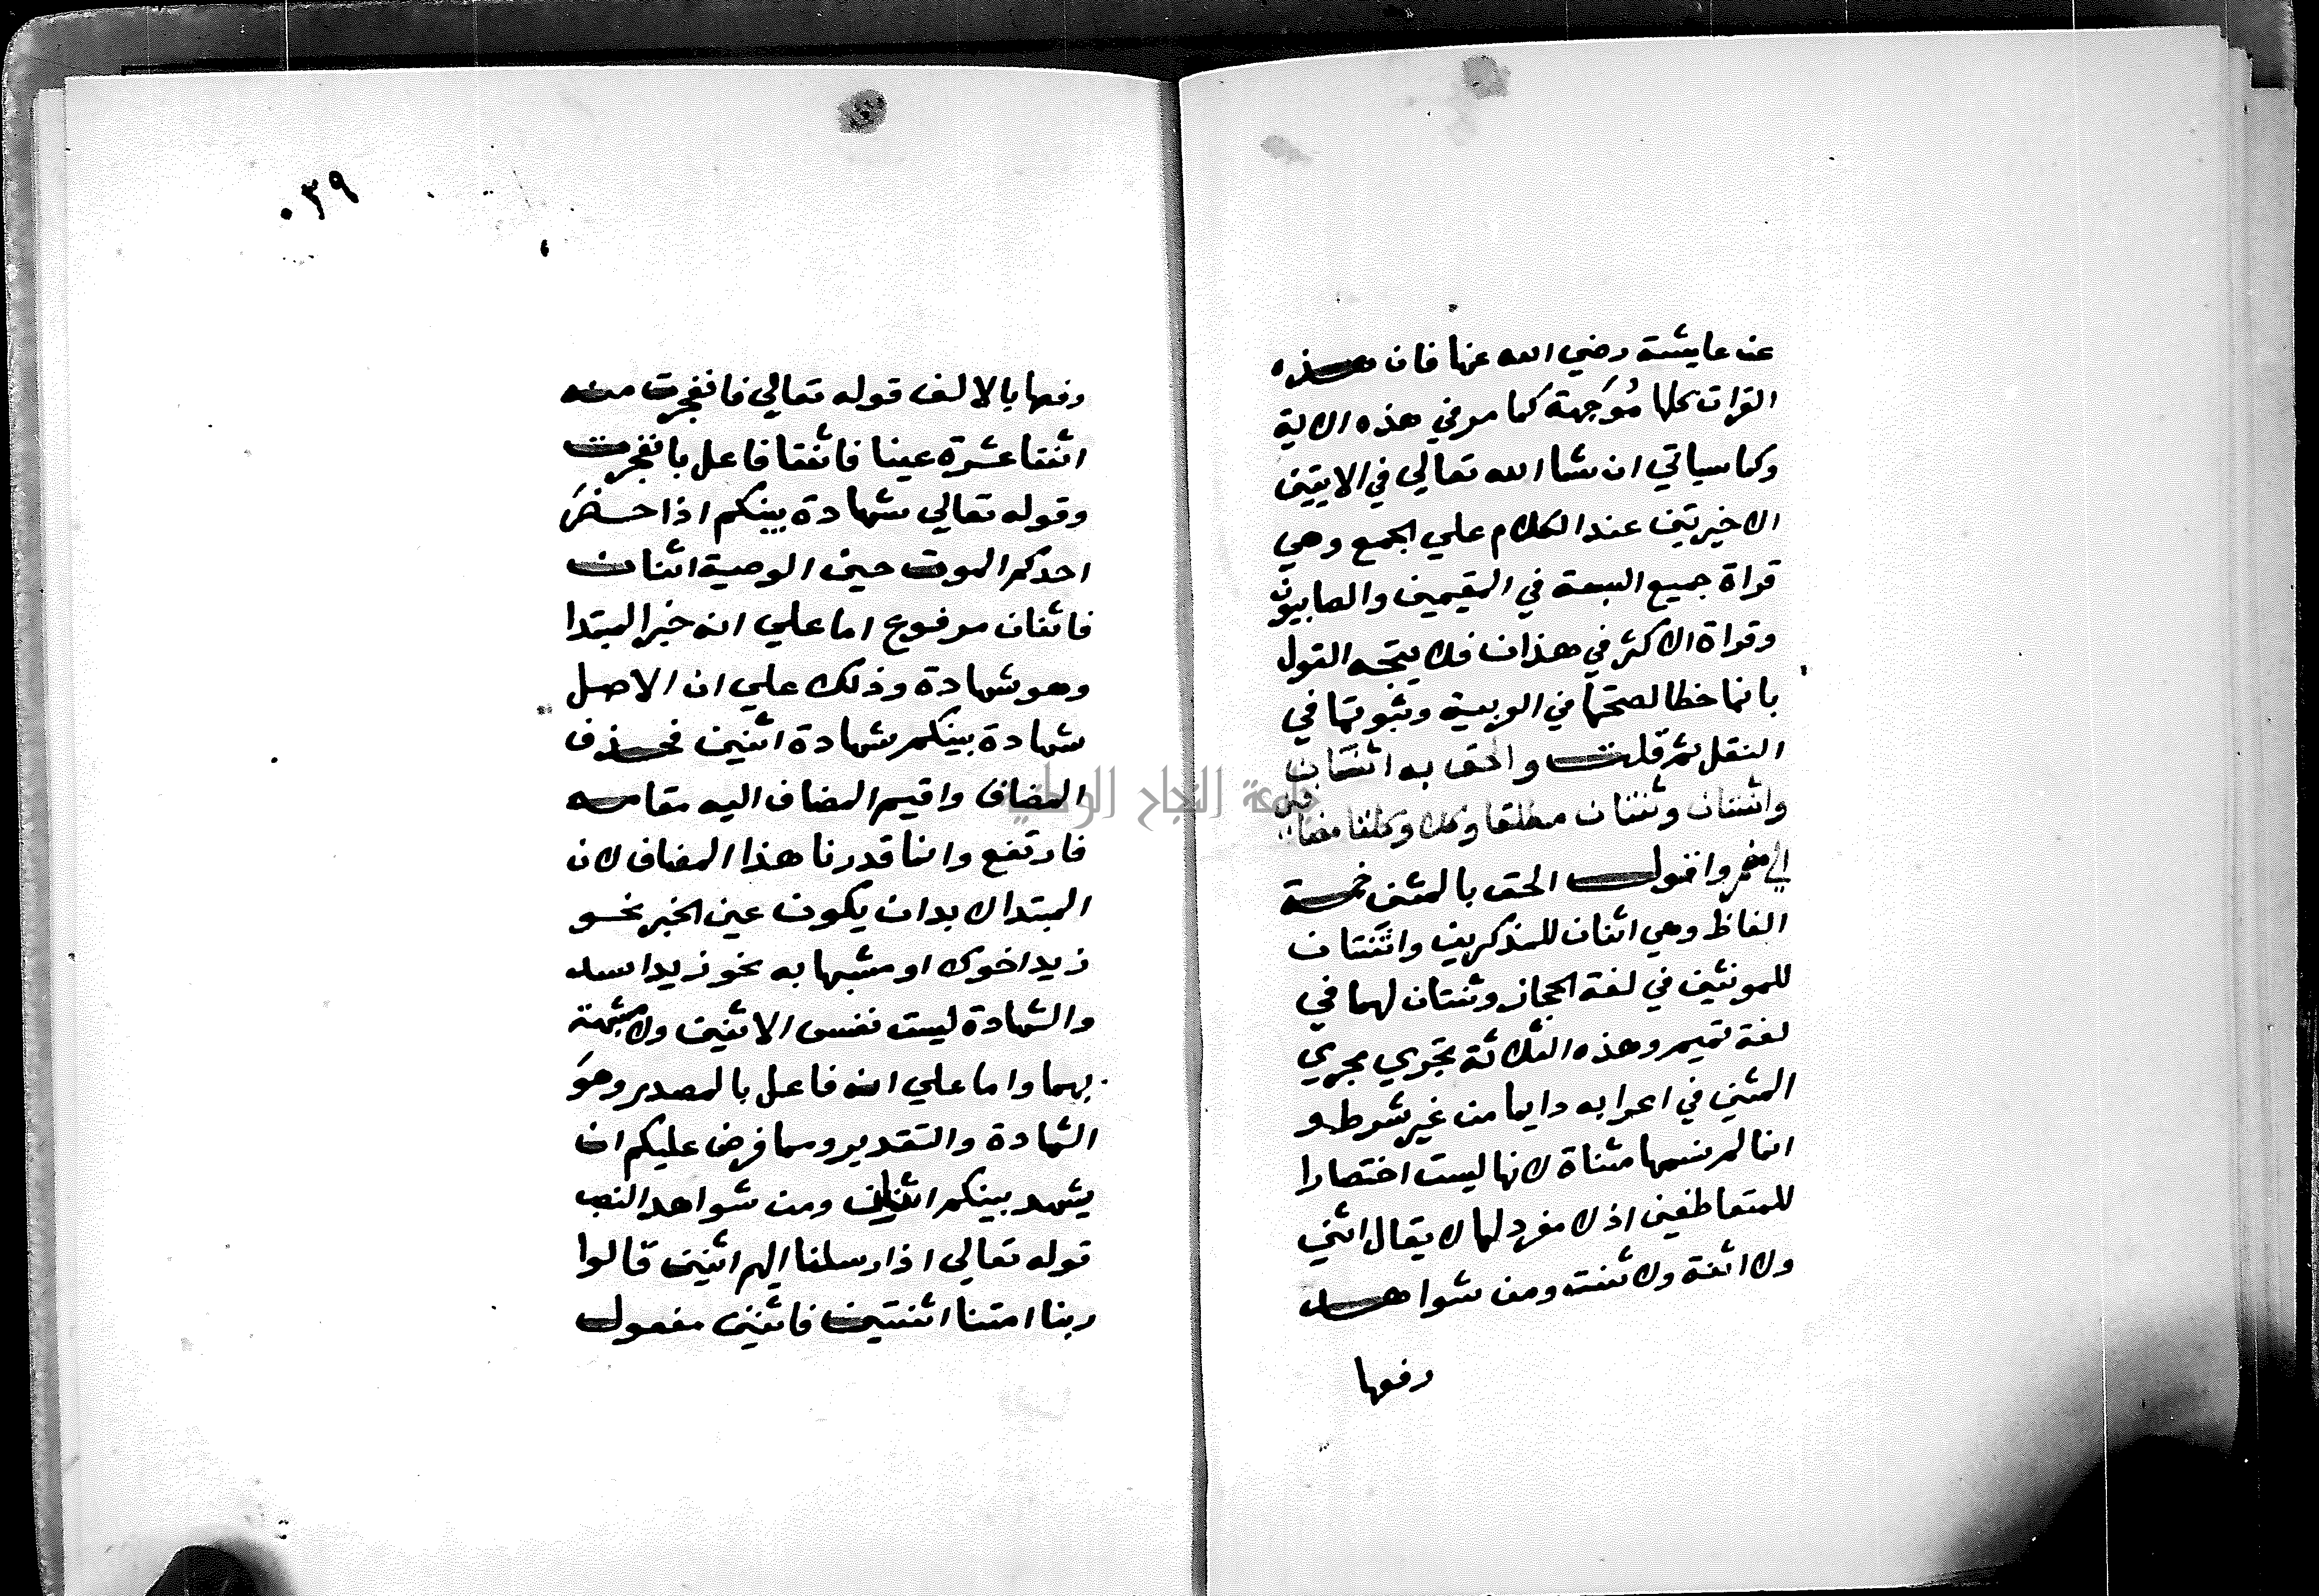 عن عايشة رضي الله عنها فان هذه
القرات كلها مُوَجهة كما مر في هذه الاية
وكما سياتي ان شا الله تعالي في الايتين
الاخيرتين عند الكلام علي الجمع وهي
قراة جميع السبعة في المقيمين والصابيون
وقراة الاكثر في هذان فلا يتجه القول
بانها خطا لصحتها في العربية وثبوتها في
النقل ثم قلت والحق به اثنان
واثنتان وثنتان مطلقا وكلا وكلتا مضافين
الي مضمر واقول الحق بالمثني خمسة
الفاظ وهي اثنان للمذكرين واثنتان
للمونثين في لغة الحجاز وثنتان لهما في
لغة تميم وهذه الثلاثة تجري مجري
المثني في اعرابه دايما من غير شرط و
انما لم نسمها مثناة لانها ليست اختصارا
للمتعاطفين اذ لا مفرد لها لا يقال اثني
ولا اثنة ولا ثنت ومن شواهد
رفعها
٠٣٩
رفعها بالالف قوله تعالي فانفجرت منه
اثنتا عشرة عينا فاثنتا فاعل بانفجرت
وقوله تعالي شهادة بينكم اذا حضر
احدكم الموت حين الوصية اثنان
فاثنان مرفوع اما علي انه خبر المبتدا
وهو شهادة وذلك علي ان الاصل
شهادة بينكم شهادة اثنين فحذف
المضاف واقيم المضاف اليه مقامه
فارتفع وانما قدرنا هذا المضاف لان
المبتدا لا بد ان يكون عين الخبر نحو
زيد اخوك او مشبها به نحو زيد اسد
والشهادة ليست نفس الاثنين ولا مشبهة
بهما واما علي انه فاعل بالمصدر وهو
الشهادة والتقدير ومما فرض عليكم ان
يشهد بينكم اثنان ومن شواهد النصب
قوله تعالي اذ ارسلنا اليهم اثنين قالوا
ربنا امتنا اثنتين فاثنين مفعول
جامعة النجاح الوطنية